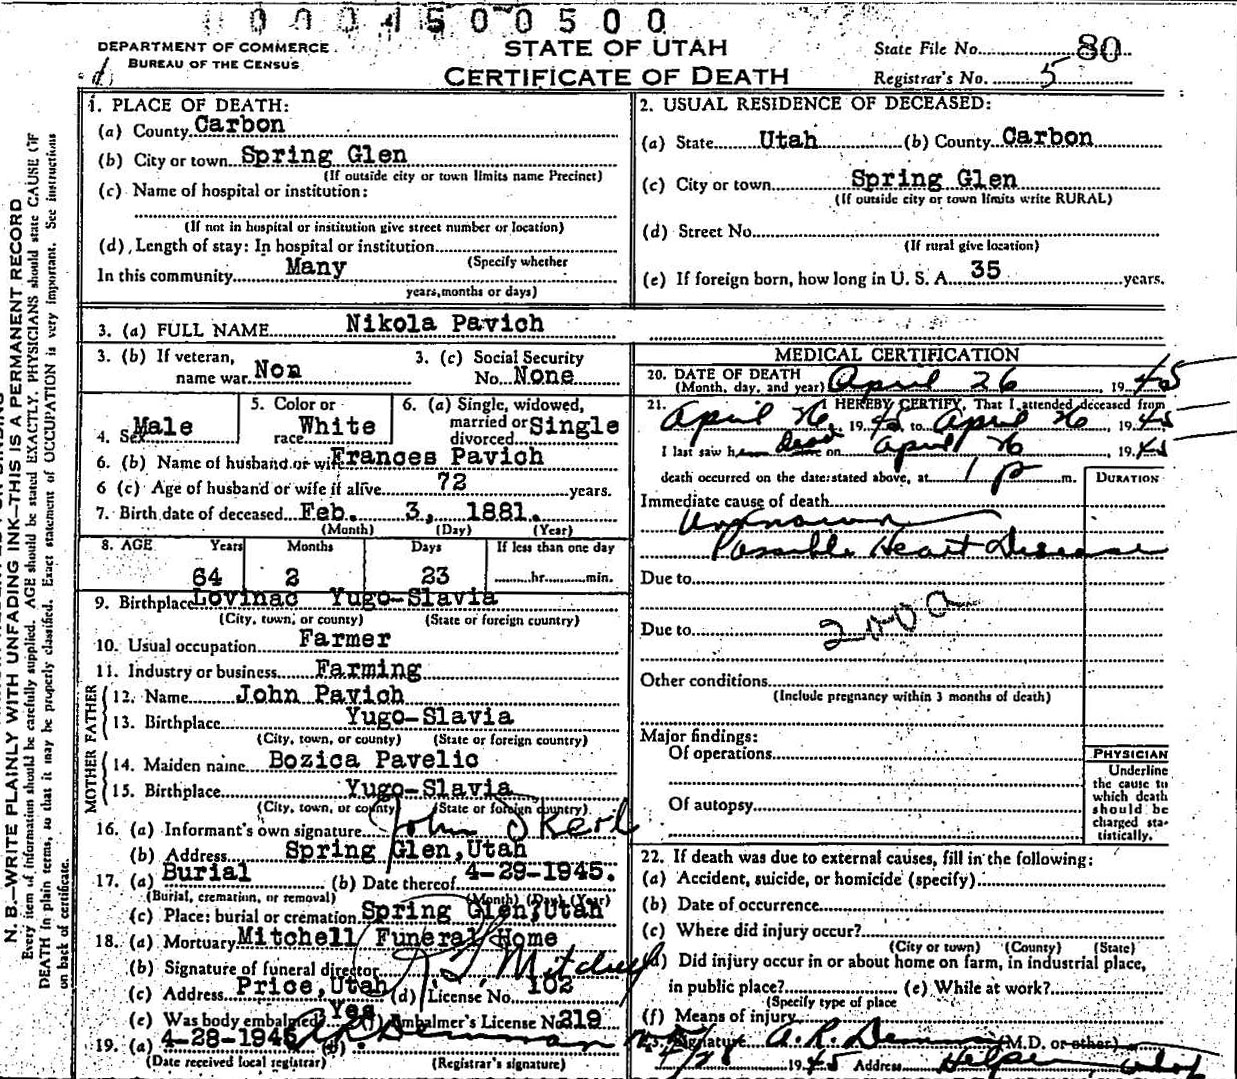 0001500500
DEPARTMENT OF COMMERCE
BUREAU OF THE CENSUS
STATE OF UTAH
CERTIFICATE OF DEATH
State File No. 80
Registrar's No. 5
N. B.—WRITE PLAINLY WITH UNFADING INK—THIS IS A PERMANENT RECORD
Every item of information should be carefully supplied. AGE should be stated EXACTLY. PHYSICIANS should state CAUSE OF
DEATH in plain terms, so that it may be properly classified. Exact statement of OCCUPATION is very important. See instructions
on back of certificate.
1. PLACE OF DEATH:
(a) County Carbon
(b) City or town Spring Glen
(If outside city or town limits name Precinct)
(c) Name of hospital or institution:
(If not in hospital or institution give street number or location)
(d) Length of stay: In hospital or institution
(Specify whether
In this community Many
years, months or days)
2. USUAL RESIDENCE OF DECEASED:
(a) State Utah (b) County Carbon
(c) City or town Spring Glen
(If outside city or town limits write RURAL)
(d) Street No.
(If rural give location)
(e) If foreign born, how long in U. S. A. 35 years.
3. (a) FULL NAME Nikola Pavich
3. (b) If veteran, name war Non
3. (c) Social Security No. None
4. Sex Male
5. Color or race White
6. (a) Single, widowed, married or divorced Single
6. (b) Name of husband or wife Frances Pavich
6 (c) Age of husband or wife if alive 72 years.
7. Birth date of deceased Feb. 3, 1881.
(Month) (Day) (Year)
8. AGE Years Months Days If less than one day
64 2 23 hr. min.
9. Birthplace Lovinac Yugo-Slavia
(City, town, or county) (State or foreign country)
10. Usual occupation Farmer
11. Industry or business Farming
FATHER
12. Name John Pavich
13. Birthplace Yugo-Slavia
(City, town, or county) (State or foreign country)
MOTHER
14. Maiden name Bozica Pavelic
15. Birthplace Yugo-Slavia
(City, town, or county) (State or foreign country)
16. (a) Informant's own signature John Skerl
(b) Address Spring Glen, Utah
17. (a) Burial (b) Date thereof 4-29-1945.
(Burial, cremation, or removal) (Month) (Day) (Year)
(c) Place: burial or cremation Spring Glen, Utah
18. (a) Mortuary Mitchell Funeral Home
(b) Signature of funeral director Mitchell
(c) Address Price, Utah (d) License No. 102
(e) Was body embalmed? Yes (f) Embalmer's License No. 219
19. (a) 4-28-1945 (b)
(Date received local registrar) (Registrar's signature)
MEDICAL CERTIFICATION
20. DATE OF DEATH
(Month, day, and year) April 26, 1945
21. I HEREBY CERTIFY, That I attended deceased from
April 26, 1945, to April 26, 1945
I last saw him dead on April 26, 1945
death occurred on the date stated above, at 1 p m.
DURATION
Immediate cause of death
Unknown
Possible Heart Disease
Due to
Due to
200a
Other conditions
(Include pregnancy within 3 months of death)
Major findings:
Of operations
Of autopsy
PHYSICIAN
Underline
the cause to
which death
should be
charged sta-
tistically.
22. If death was due to external causes, fill in the following:
(a) Accident, suicide, or homicide (specify)
(b) Date of occurrence
(c) Where did injury occur?
(City or town) (County) (State)
(d) Did injury occur in or about home on farm, in industrial place,
in public place? (e) While at work?
(Specify type of place
(f) Means of injury
23. Signature A. R. Demman (M.D. or other)
4/28 1945 Address Helper Utah